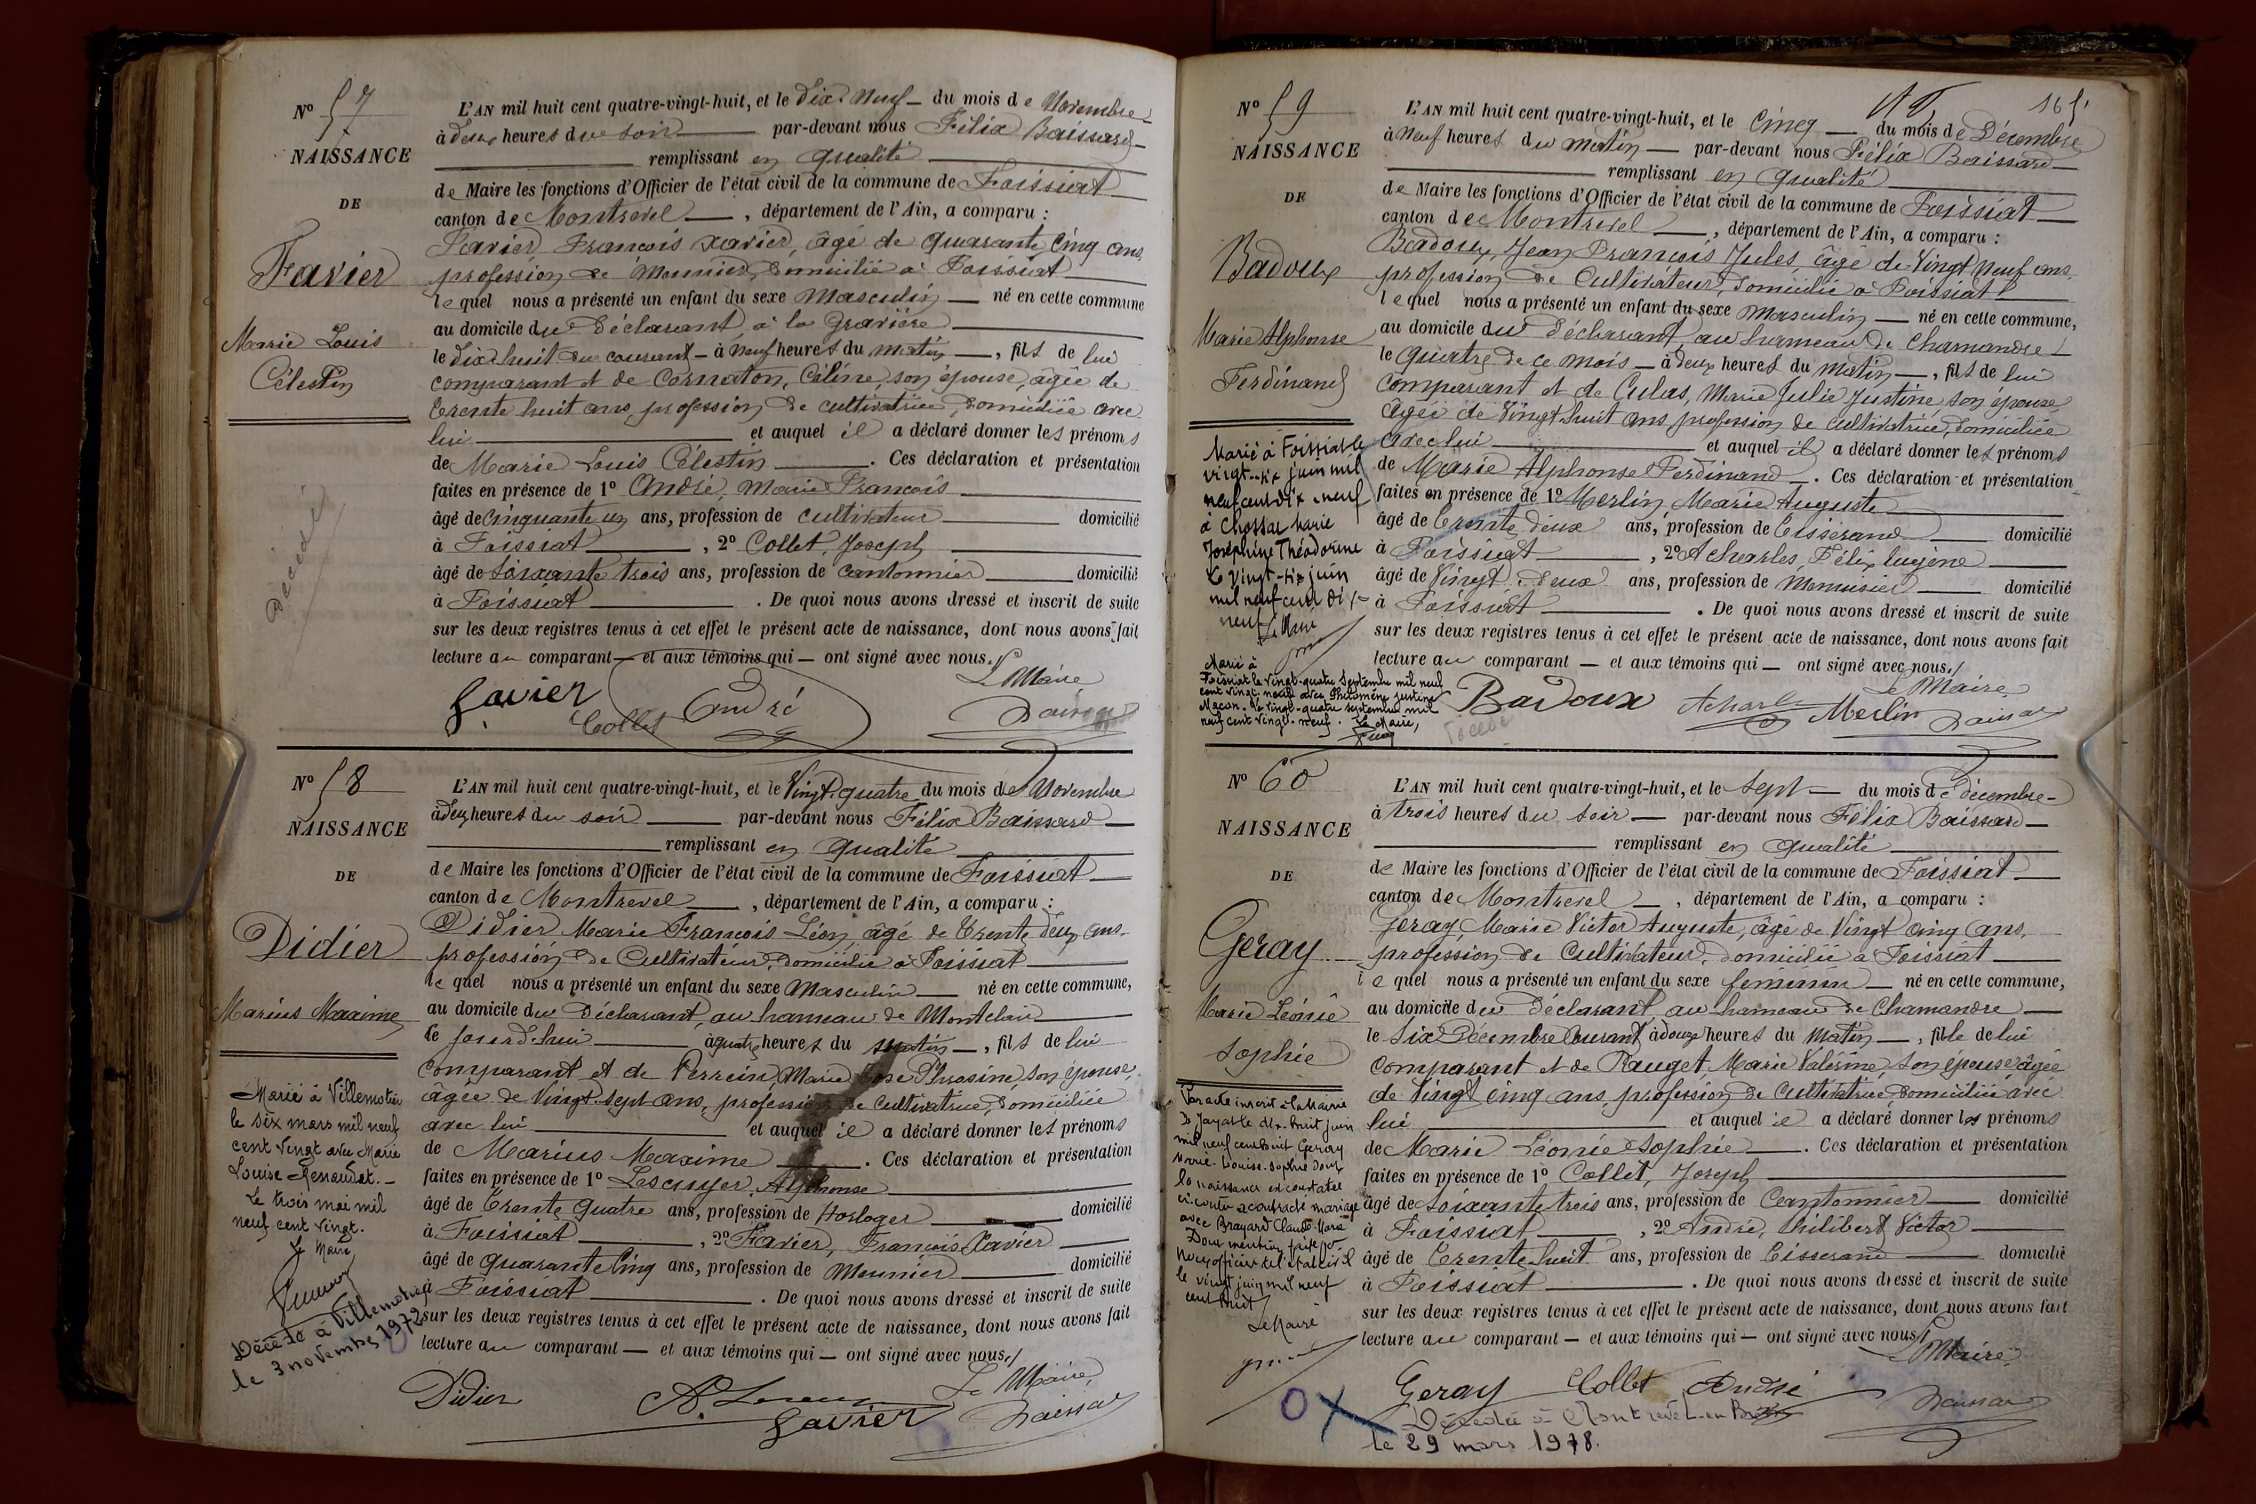 N° 57
NAISSANCE
DE
Favier
Marie Louis
Célestin
Décédé
L'AN mil huit cent quatre-vingt-huit, et le dix-neuf du mois de Novembre
à deux heures du soir par-devant nous Félix Baissard
remplissant en qualité
de Maire les fonctions d'Officier de l'état civil de la commune de Foissiat
canton de Montrevel, département de l'Ain, a comparu :
Favier, François Xavier, âgé de quarante cinq ans,
profession de Meunier, domicilié à Foissiat
lequel nous a présenté un enfant du sexe Masculin né en cette commune
au domicile du déclarant, à la Gravière
le dix-huit du courant à neuf heures du matin, fils de lui
comparant et de Cornaton, Céline, son épouse, âgée de
trente huit ans, profession de cultivatrice, domiciliée avec
lui et auquel il a déclaré donner les prénoms
de Marie Louis Célestin. Ces déclaration et présentation
faites en présence de 1° André, Marie François
âgé de cinquante un ans, profession de cultivateur domicilié
à Foissiat, 2° Collet, Joseph
âgé de soixante trois ans, profession de cantonnier domicilié
à Foissiat. De quoi nous avons dressé et inscrit de suite
sur les deux registres tenus à cet effet le présent acte de naissance, dont nous avons fait
lecture au comparant et aux témoins qui ont signé avec nous.
Le Maire
Favier Collet André
N° 58
NAISSANCE
DE
Didier
Marius Maxime
Marié à Villemotier
le six mars mil neuf
cent vingt avec Marie
Louise
Le trois mai mil
neuf cent vingt.
Le Maire
Décédé à Villemotier
le 3 novembre 1972
L'AN mil huit cent quatre-vingt-huit, et le Vingt-quatre du mois de Novembre
à deux heures du soir par-devant nous Félix Baissard
remplissant en qualité
de Maire les fonctions d'Officier de l'état civil de la commune de Foissiat
canton de Montrevel, département de l'Ain, a comparu :
Didier Marie François Léon, âgé de trente deux ans,
profession de Cultivateur, domicilié à Foissiat
lequel nous a présenté un enfant du sexe Masculin né en cette commune,
au domicile du déclarant, au hameau de Montclair
le jourd'hui à quatre heures du matin, fils de lui
comparant et de Perrein, Marie Rose Phrasine, son épouse,
âgée de Vingt sept ans, profession de cultivatrice, domiciliée
avec lui et auquel il a déclaré donner les prénoms
de Marius Maxime. Ces déclaration et présentation
faites en présence de 1° Lescuyer, Alphonse
âgé de trente quatre ans, profession de Horloger domicilié
à Foissiat, 2° Favier, François Xavier
âgé de quarante cinq ans, profession de Meunier domicilié
à Foissiat. De quoi nous avons dressé et inscrit de suite
sur les deux registres tenus à cet effet le présent acte de naissance, dont nous avons fait
lecture au comparant et aux témoins qui ont signé avec nous.
Le Maire,
Didier Favier
165
N° 59
NAISSANCE
DE
Badoux
Marie Alphonse
Ferdinand
Marié à Foissiat le
vingt-six juin mil
neuf cent dix-neuf
à Chossat Marie
Joséphine Théodorine
Le vingt-six juin
mil neuf cent dix-
neuf
Le Maire
Marié à
Foissiat le vingt-quatre Septembre mil neuf
cent vingt neuf avec Philomène Justine
Mâcon. Le vingt-quatre septembre mil
neuf cent vingt-neuf. Le Maire,
L'AN mil huit cent quatre-vingt-huit, et le Cinq du mois de Décembre
à neuf heures du matin par-devant nous Félix Baissard
remplissant en qualité
de Maire les fonctions d'Officier de l'état civil de la commune de Foissiat
canton de Montrevel, département de l'Ain, a comparu :
Badoux, Jean François Jules âgé de Vingt neuf ans,
profession de Cultivateur, domicilié à Foissiat
lequel nous a présenté un enfant du sexe Masculin né en cette commune,
au domicile du déclarant, au hameau de Chamandre
le quatre de ce mois à deux heures du matin, fils de lui
comparant et de Culas, Marie Julie Justine, son épouse
âgée de Vingt huit ans, profession de cultivatrice, domiciliée
avec lui et auquel il a déclaré donner les prénoms
de Marie Alphonse Ferdinand. Ces déclaration et présentation
faites en présence de 1° Merlin, Marie Auguste
âgé de trente deux ans, profession de tisserand domicilié
à Foissiat, 2° Acharles, Félix Eugène
âgé de Vingt deux ans, profession de Menuisier domicilié
à Foissiat. De quoi nous avons dressé et inscrit de suite
sur les deux registres tenus à cet effet le présent acte de naissance, dont nous avons fait
lecture au comparant et aux témoins qui ont signé avec nous.
Le Maire
Badoux Merlin
N° 60
NAISSANCE
DE
Geray
Marie Léonie
Sophie
Par acte inscrit à la Mairie
de Jayat le dix-huit juin
mil neuf cent huit Geray
Marie-Louise-Sophie dont
la naissance est constatée
ci-contre a contracté mariage
avec Brayard Claude Marie
Dont mention faite par
nous officier de l'état civil
le vingt juin mil neuf
cent huit
Le Maire
L'AN mil huit cent quatre-vingt-huit, et le Sept du mois de décembre
à trois heures du soir par-devant nous Félix Baissard
remplissant en qualité
de Maire les fonctions d'Officier de l'état civil de la commune de Foissiat
canton de Montrevel, département de l'Ain, a comparu :
Geray, Marie Victor Auguste, âgé de Vingt cinq ans,
profession de Cultivateur, domicilié à Foissiat
lequel nous a présenté un enfant du sexe féminin né en cette commune,
au domicile du déclarant, au hameau de Chamandre
le Six Décembre Courant à douze heures du Matin, fille de lui
comparant et de Pauget, Marie Valérine son épouse âgée
de Vingt cinq ans, profession de cultivatrice, domiciliée avec
lui et auquel il a déclaré donner les prénoms
de Marie Léonie Sophie. Ces déclaration et présentation
faites en présence de 1° Collet, Joseph
âgé de soixante trois ans, profession de Cantonnier domicilié
à Foissiat, 2° André, Philibert Victor
âgé de trente huit ans, profession de tisserand domicilié
à Foissiat. De quoi nous avons dressé et inscrit de suite
sur les deux registres tenus à cet effet le présent acte de naissance, dont nous avons fait
lecture au comparant et aux témoins qui ont signé avec nous
Le Maire
Geray Collet André
Décédée à Montrevel-en-Bresse
le 29 mars 1978.